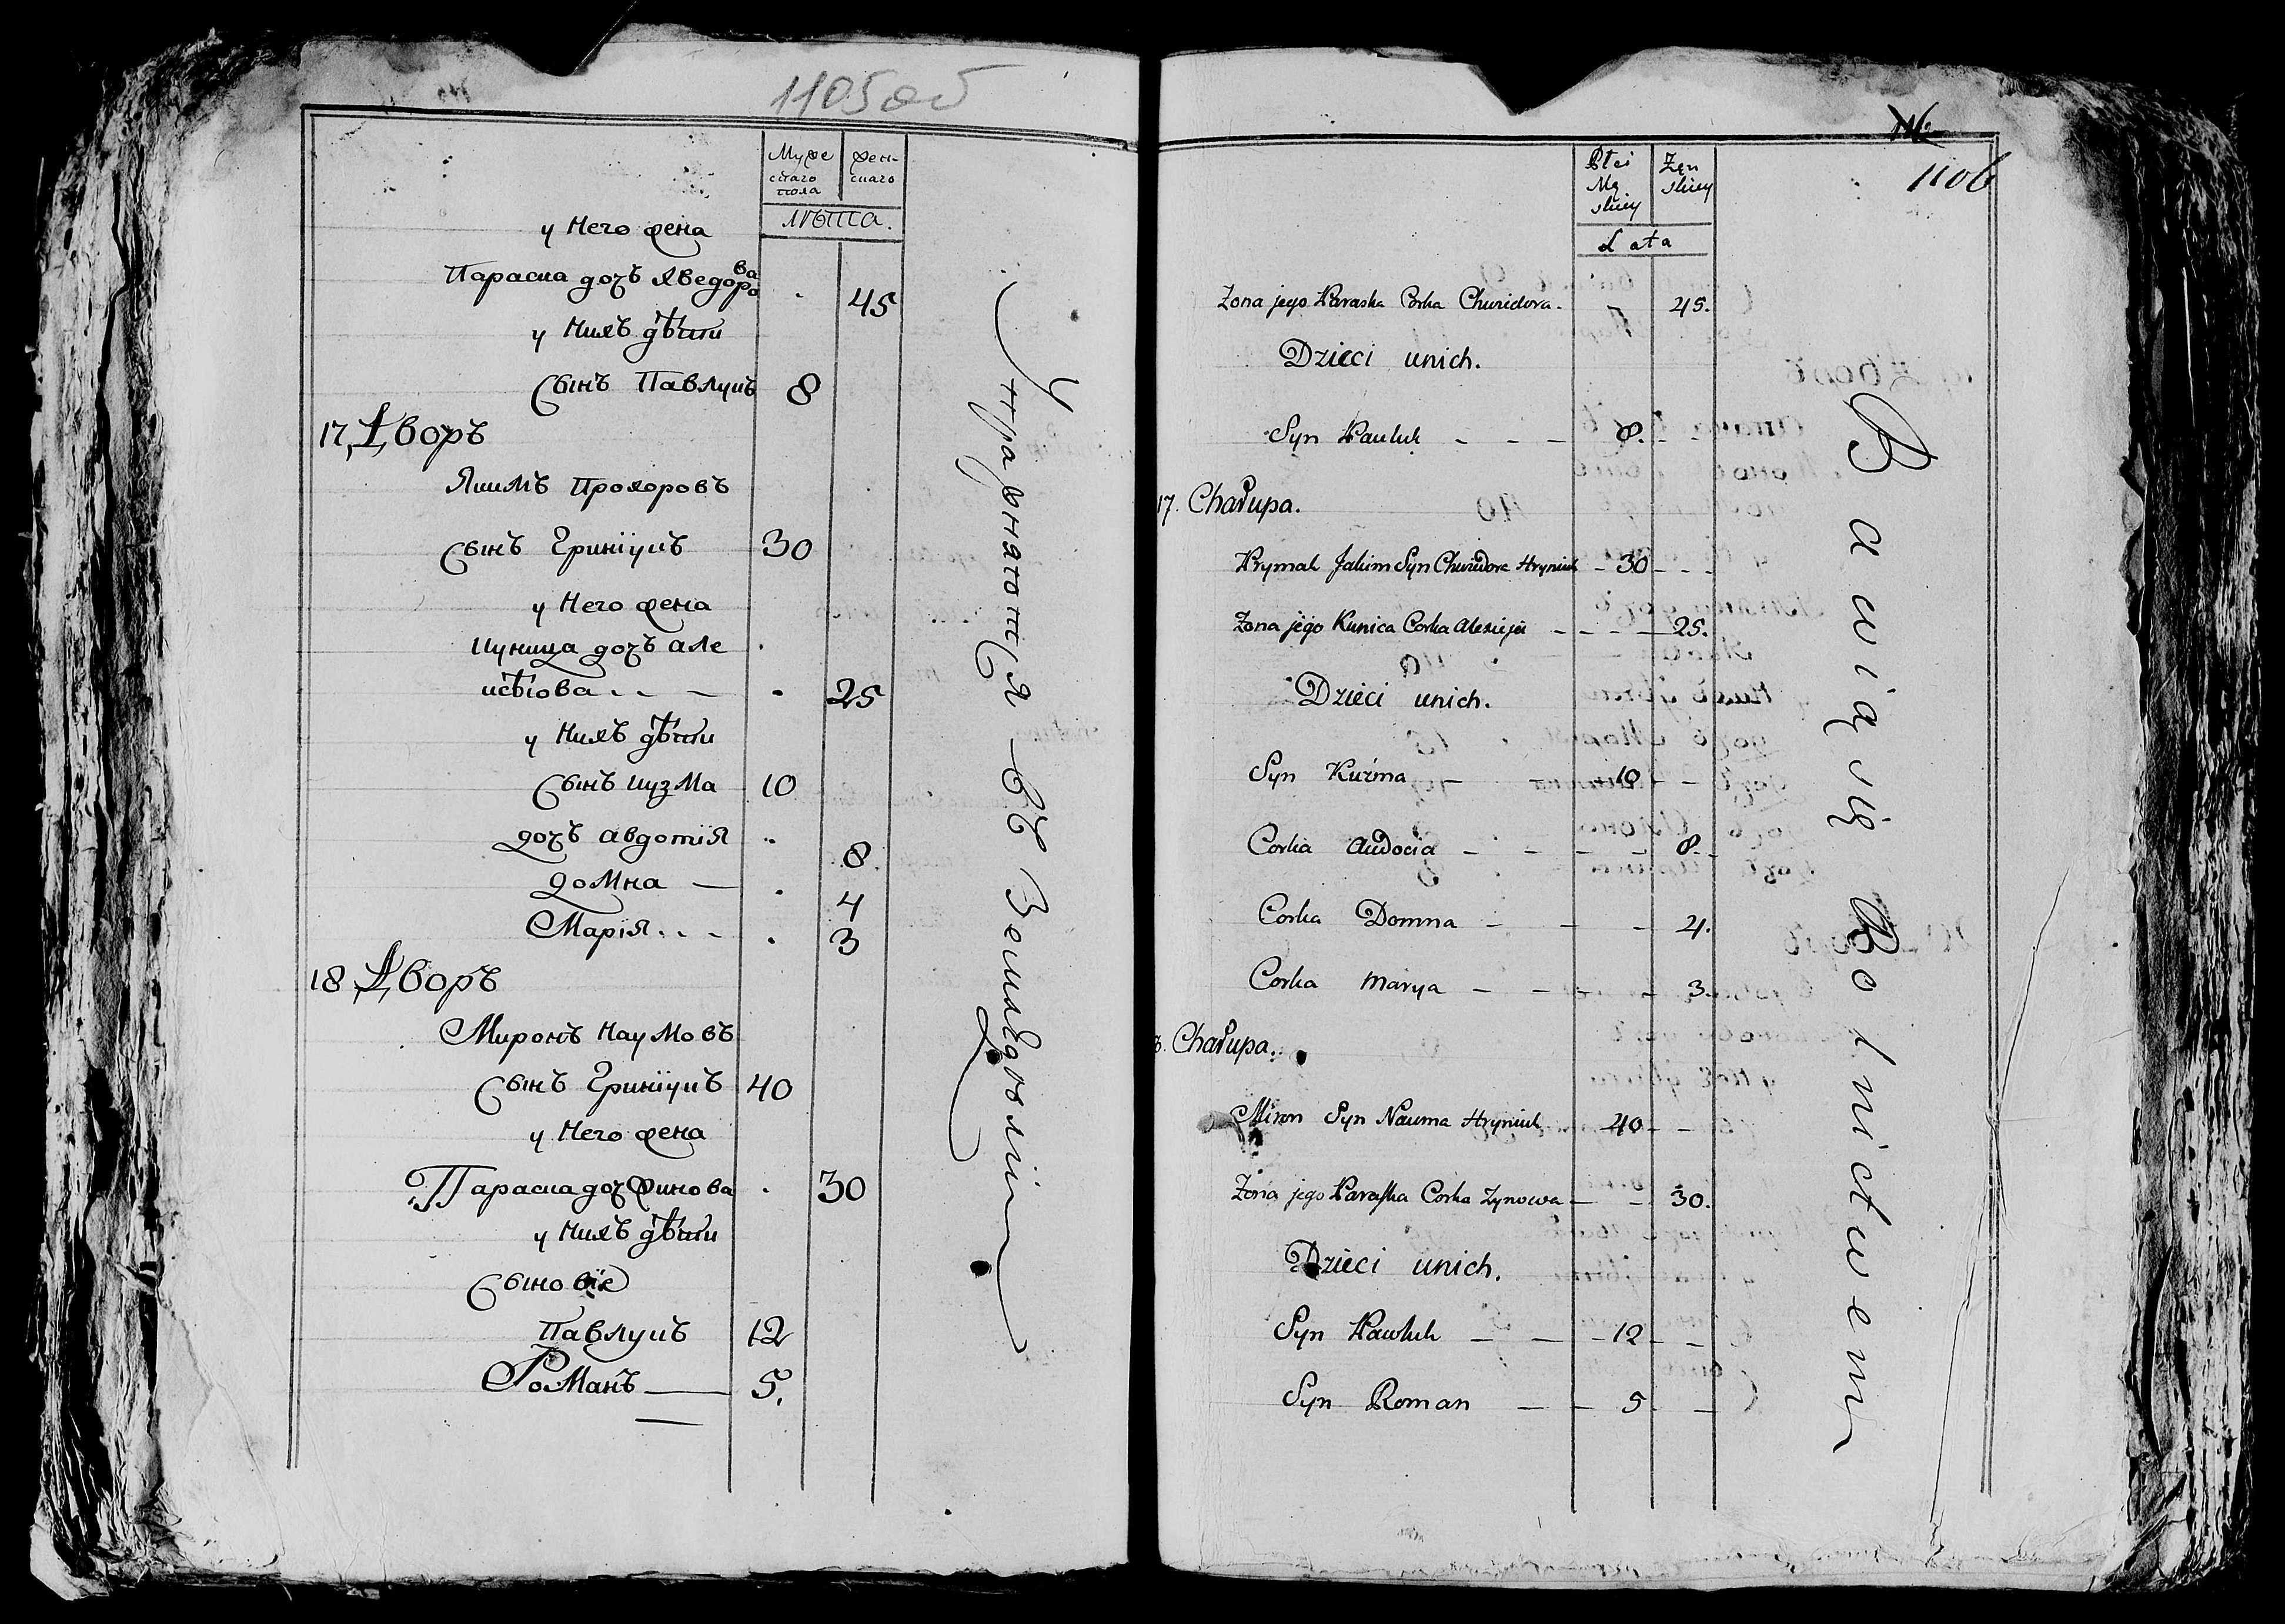 1105об
Муже
скаго
пола
жен-
скаго
лѣта.
у Него жена
Параска дочь Хведоро
ва
45
у нихъ дѣти
Сынъ Павлукъ 8
17, Дворъ
Якимъ Прохоровъ
Сынъ Гринїукъ 30
у Него жена
куница дочь але
ксѣіова 25
у нихъ дѣти
Сынъ кузма 10
дочъ авдотїя 8
домна — 4
Марїя 3
18 Дворъ
Миронъ Наумовъ
Сынъ Гринїукъ 40
у Него жена
Параска доч Зинова 30
у нихъ дѣти
Сыновїе
Павлукъ 12
Романъ — 5.
УпражняютСя въ Земледѣлїи
1106
Płci
Mę
skiey
Żęn
skiey
Lata
Zona jego Paraska Corka Chwidora. 45.
Dzieci unich.
Syn Pauluk - - - 8. - -
17. Chałupa.
Prymak Jakim Syn Chwidora Hryniuk - 30 - - -
Zona jego Kunica Corka Alexieja - - - - 25.
Dzieci unich.
Syn Kuźma - - 10 - -
Corka Audocia - - - - 8. -
Corka Domna - - - 4.
Corka Marya - - - - 3.
8. Chałupa.
Miron Syn Nauma Hryniuk 40 - -
Zona jego Paraska Corka Zynowa - - 30.
Dzieci unich.
Syn Pawluk - - - 12 - -
Syn Roman - - 5. -
Bawią się Rolnictwem